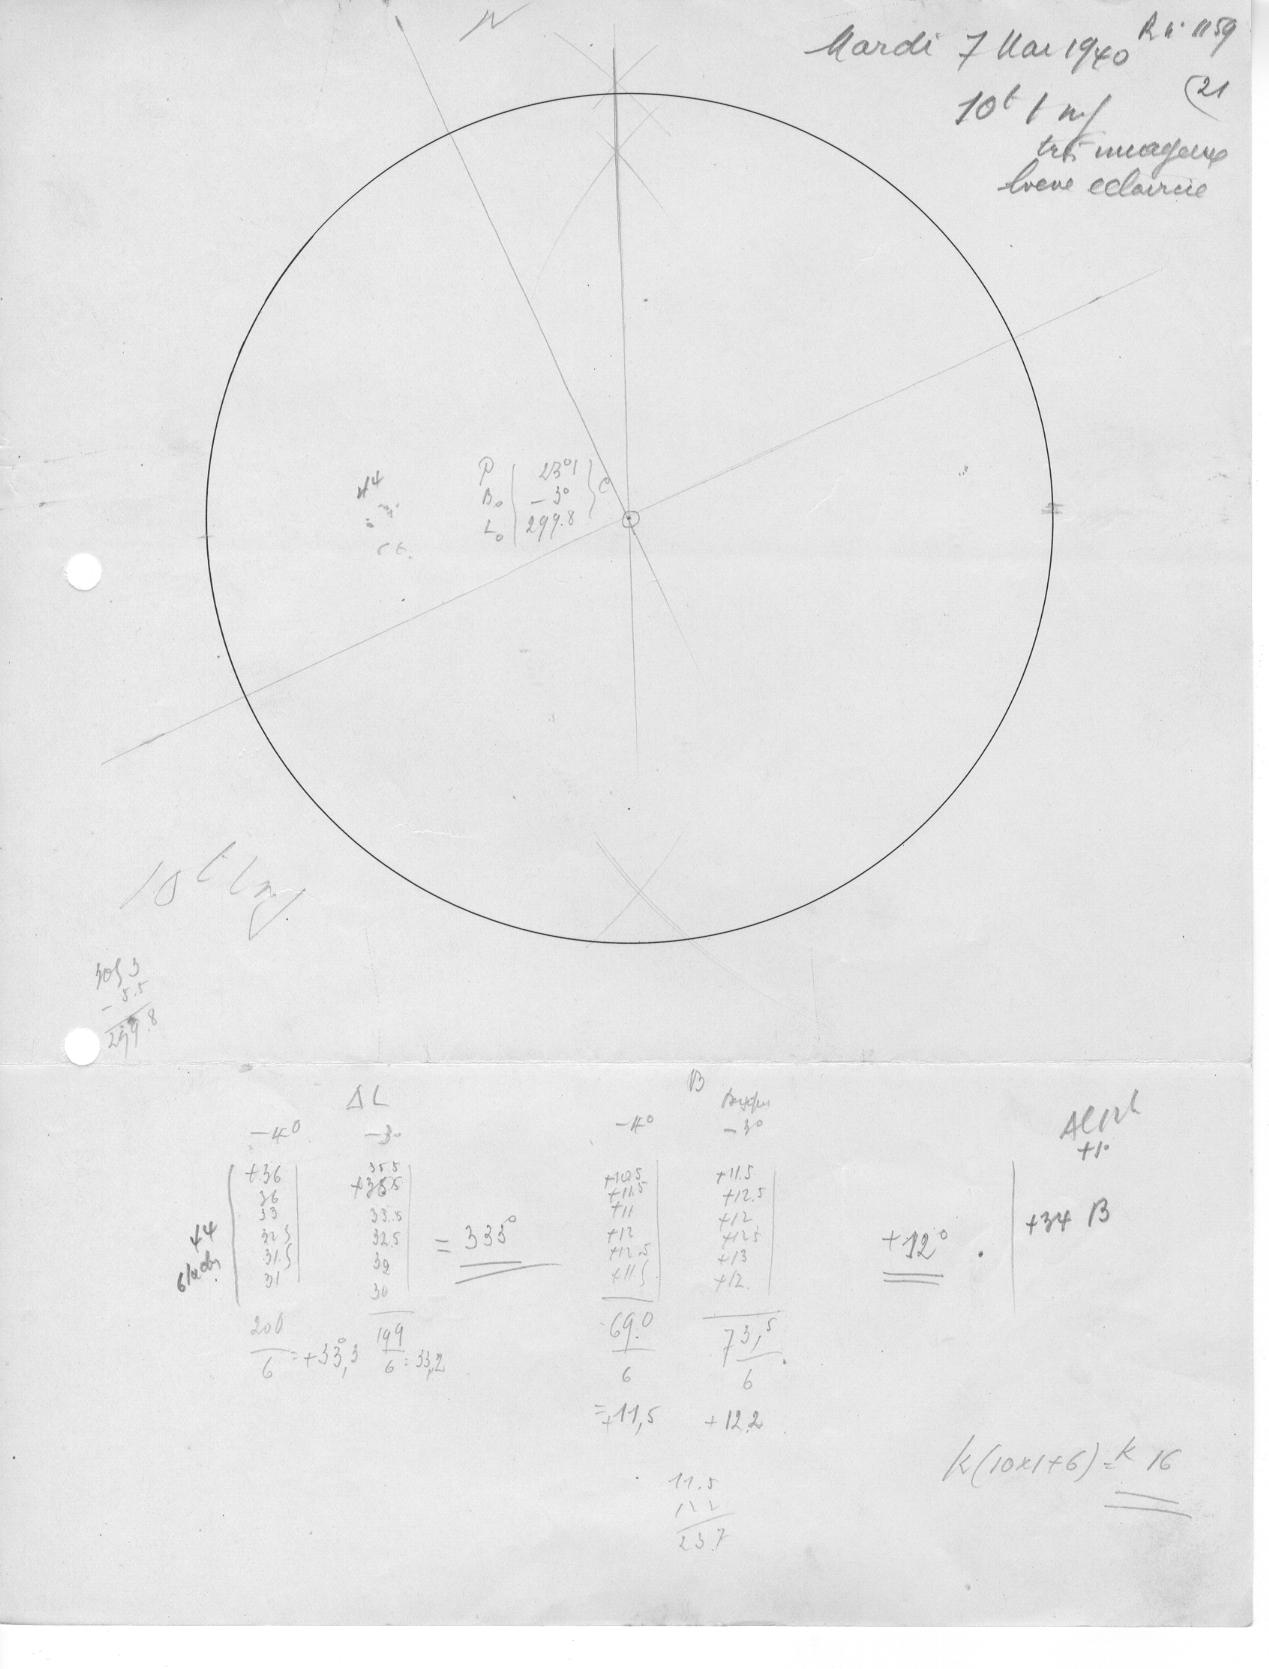 N
Mardi 7 Mai 1940
R n° 1159
(21
10ᵗ t m/
très nuageux
breve eclaircie
44
P 23°1
B₀ -3°
L₀ 299.8
10ᵗ t m/
305 3
- 5.5
299.8
ΔL
-4° -3°
+36 35.5
36 +35.5
33 33.5
32.5 32.5
31.5 32
31 30
44
= 333°
200/6 = +33°,3 199/6 = 33,2
B
-4° -3°
+10.5 +11.5
+11.5 +12.5
+11 +12
+12 +12.5
+12.5 +13
+11.5 +12.
69.0/6 73,5/6
= +11,5 +12.2
+12°.
+1°
+34 B
11.5
12 2
23.7
k(10x1+6) = k 16